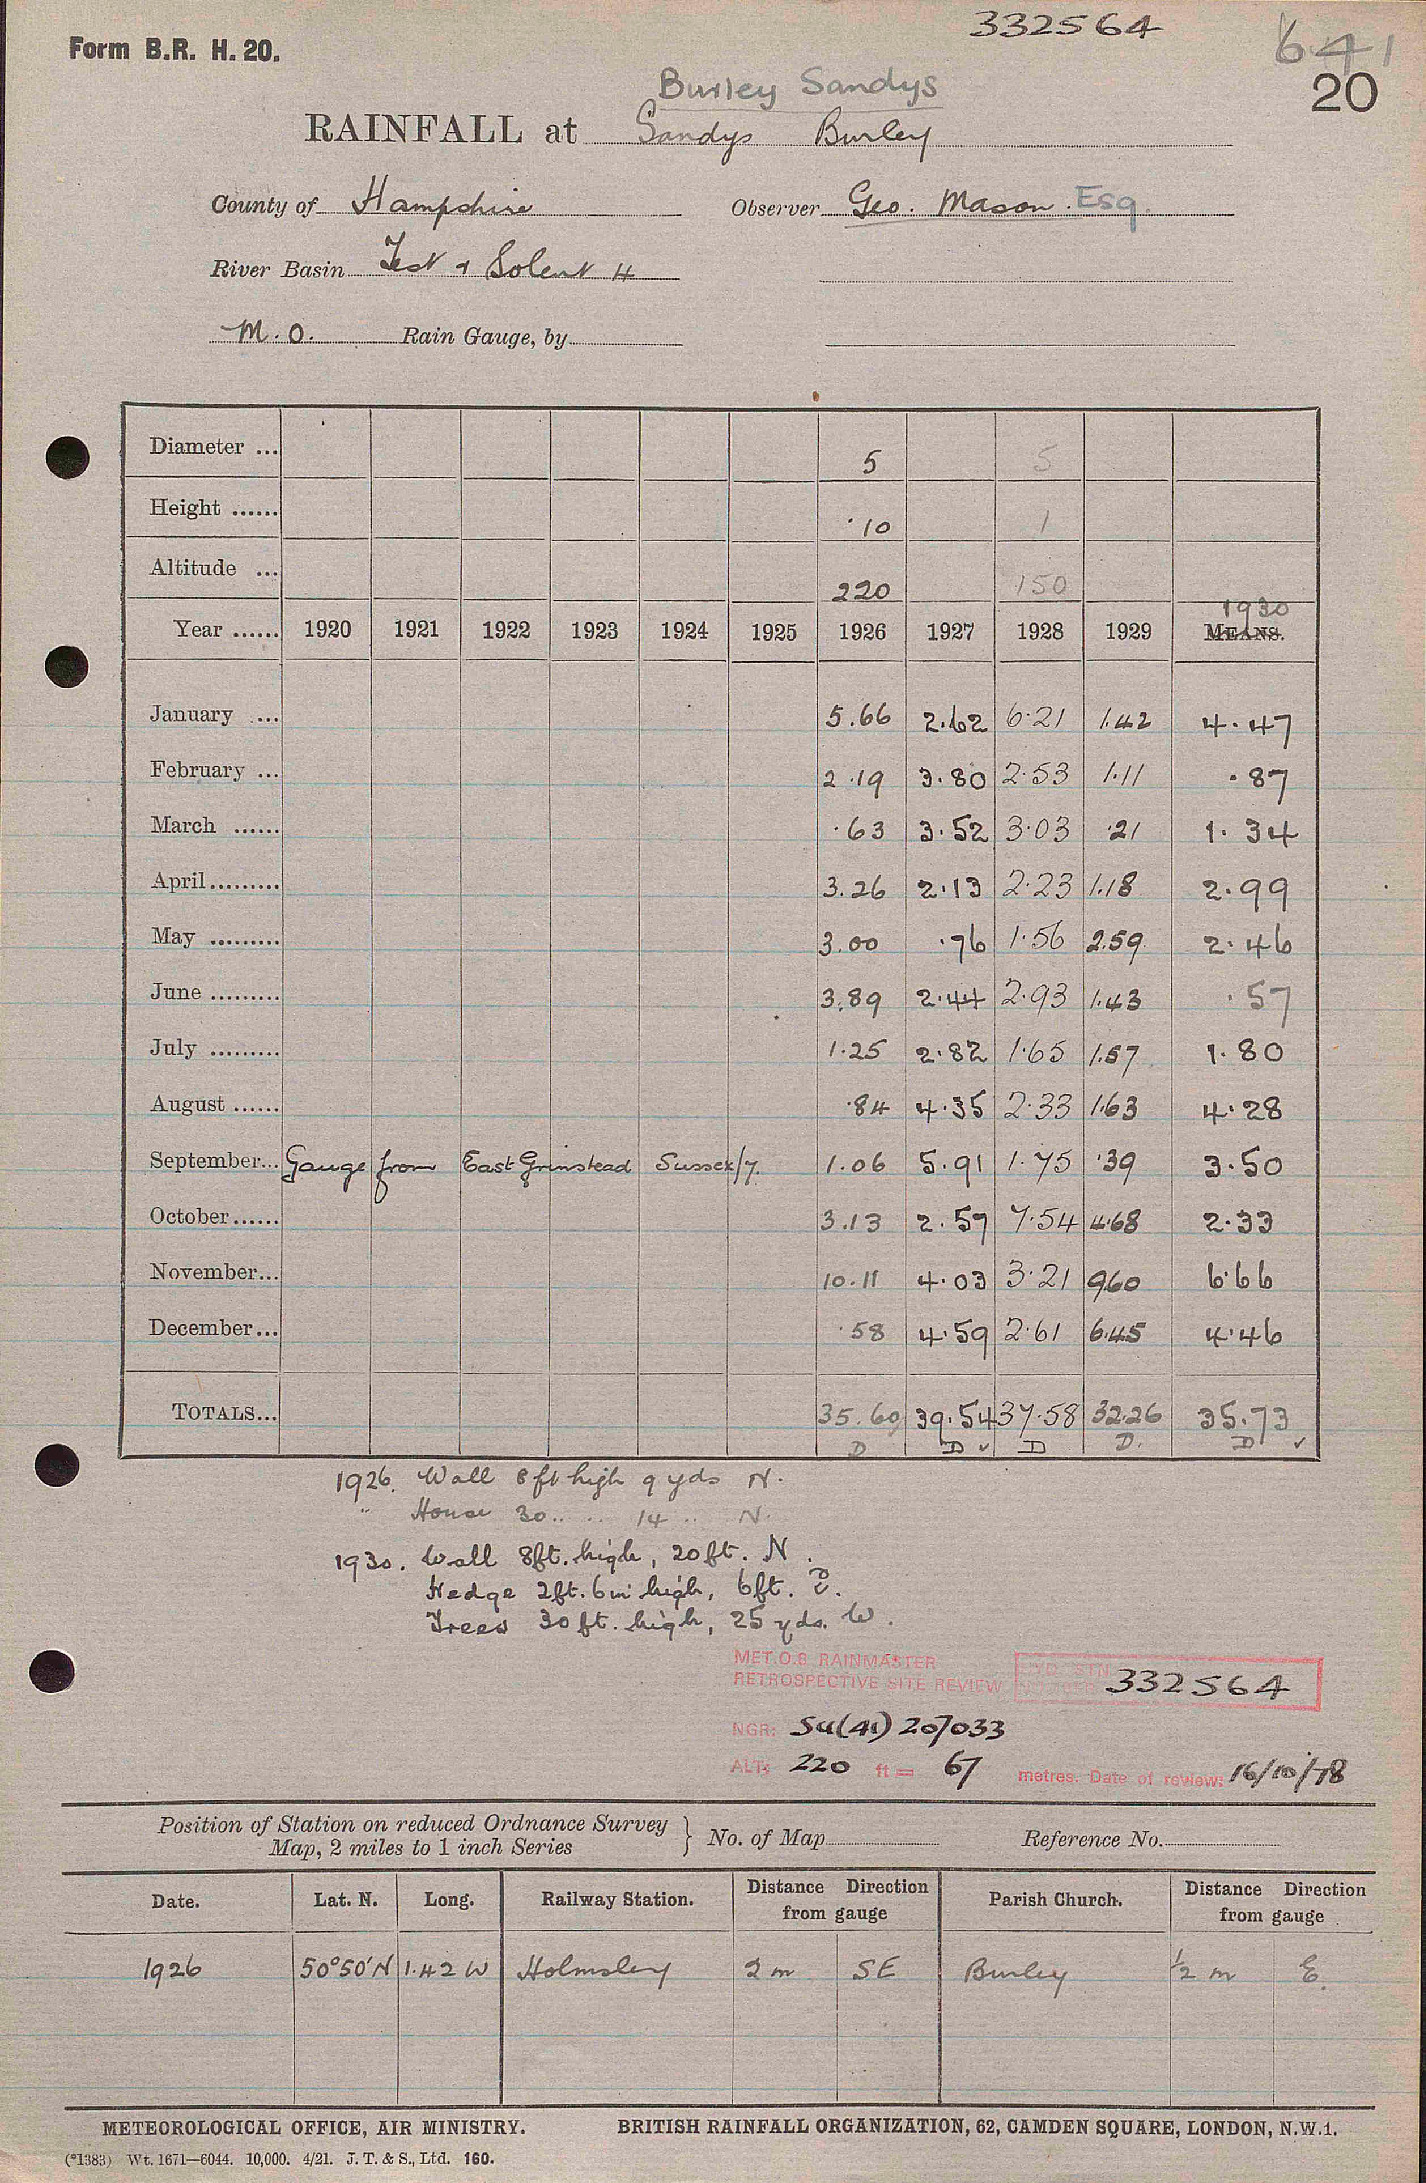 332564
641
Form B.R. H. 20.
20
Burley Sandys
RAINFALL at Sandys Burley
County of Hampshire Observer Geo. Mason. Esq.
River Basin Test & Solent 4
M.O. Rain Gauge, by
Diameter ... 5 5
Height ...... ·10 1
Altitude ... 220 150
1930
Year ...... 1920 1921 1922 1923 1924 1925 1926 1927 1928 1929 MEANS.
January ... 5.66 2.62 6.21 1.42 4.47
February ... 2.19 3.80 2.53 1.11 .87
March ...... .63 3.52 3.03 .21 1.34
April......... 3.26 2.13 2.23 1.18 2.99
May ......... 3.00 .76 1.56 2.59 2.46
June ......... 3.89 2.44 2.93 1.43 .57
July ......... 1.25 2.82 1.65 1.57 1.80
August ...... .84 4.35 2.33 1.63 4.28
September... Gauge from East Grinstead Sussex/7. 1.06 5.91 1.75 .39 3.50
October...... 3.13 2.57 7.54 4.68 2.33
November... 10.11 4.03 3.21 9.60 6.66
December... .58 4.59 2.61 6.45 4.46
TOTALS... 35.60 39.54 37.58 32.26 35.73
D D ✓ D D. D ✓
1926. Wall 8 ft high 9 yds N.
" House 30 .. .. 14 .. N.
1930. Wall 8ft. high, 20ft. N.
Hedge 2ft. 6in high, 6ft.
Trees 30 ft. high, 25 yds. W.
MET.O.8 RAINMASTER
RETROSPECTIVE SITE REVIEW 332564
NGR: SU(41) 207033
ALT: 220 ft = 67 metres. Date of review: 16/10/78
Position of Station on reduced Ordnance Survey
Map, 2 miles to 1 inch Series } No. of Map Reference No.
Date. Lat. N. Long. Railway Station. Distance Direction from gauge Parish Church. Distance Direction from gauge
1926 50°50'N 1.42 W Holmsley 2 m SE Burley ½ m E.
METEOROLOGICAL OFFICE, AIR MINISTRY. BRITISH RAINFALL ORGANIZATION, 62, CAMDEN SQUARE, LONDON, N.W.1.
(*1383) Wt. 1671—6044. 10,000. 4/21. J. T. & S., Ltd. 160.